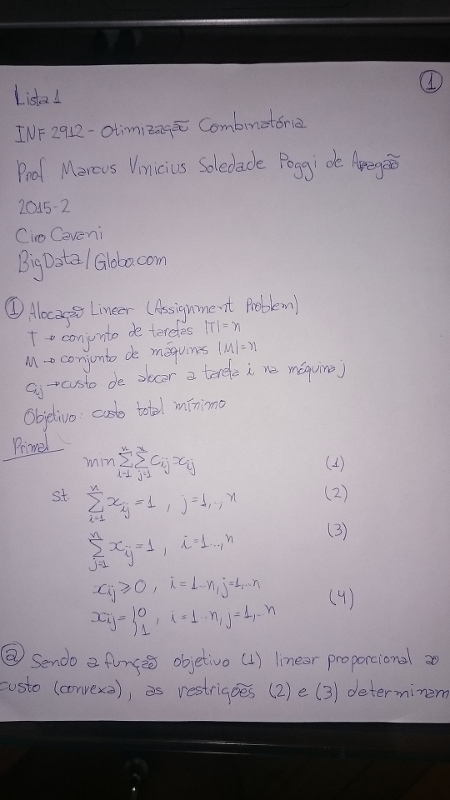 ①
Lista 1
INF 2912 - Otimização Combinatória
Prof Marcus Vinicius Soledade Poggi de Aragão
2015-2
Ciro Cavani
BigData/Globo.com
① Alocação Linear (Assignment Problem)
T → conjunto de tarefas |T|=n
M → conjunto de máquinas |M|=n
cij → custo de alocar a tarefa i na máquina j
Objetivo: custo total mínimo
Primal
min Σ(i=1..n) Σ(j=1..n) cij xij (1)
st Σ(i=1..n) xij = 1 , j=1,..,n (2)
Σ(j=1..n) xij = 1 , i=1...,n (3)
xij ≥ 0 , i=1..n, j=1,..n
xij = {0 1 , i=1..n, j=1,..n (4)
ⓐ Sendo a função objetivo (1) linear proporcional ao
custo (convexa), as restrições (2) e (3) determinam